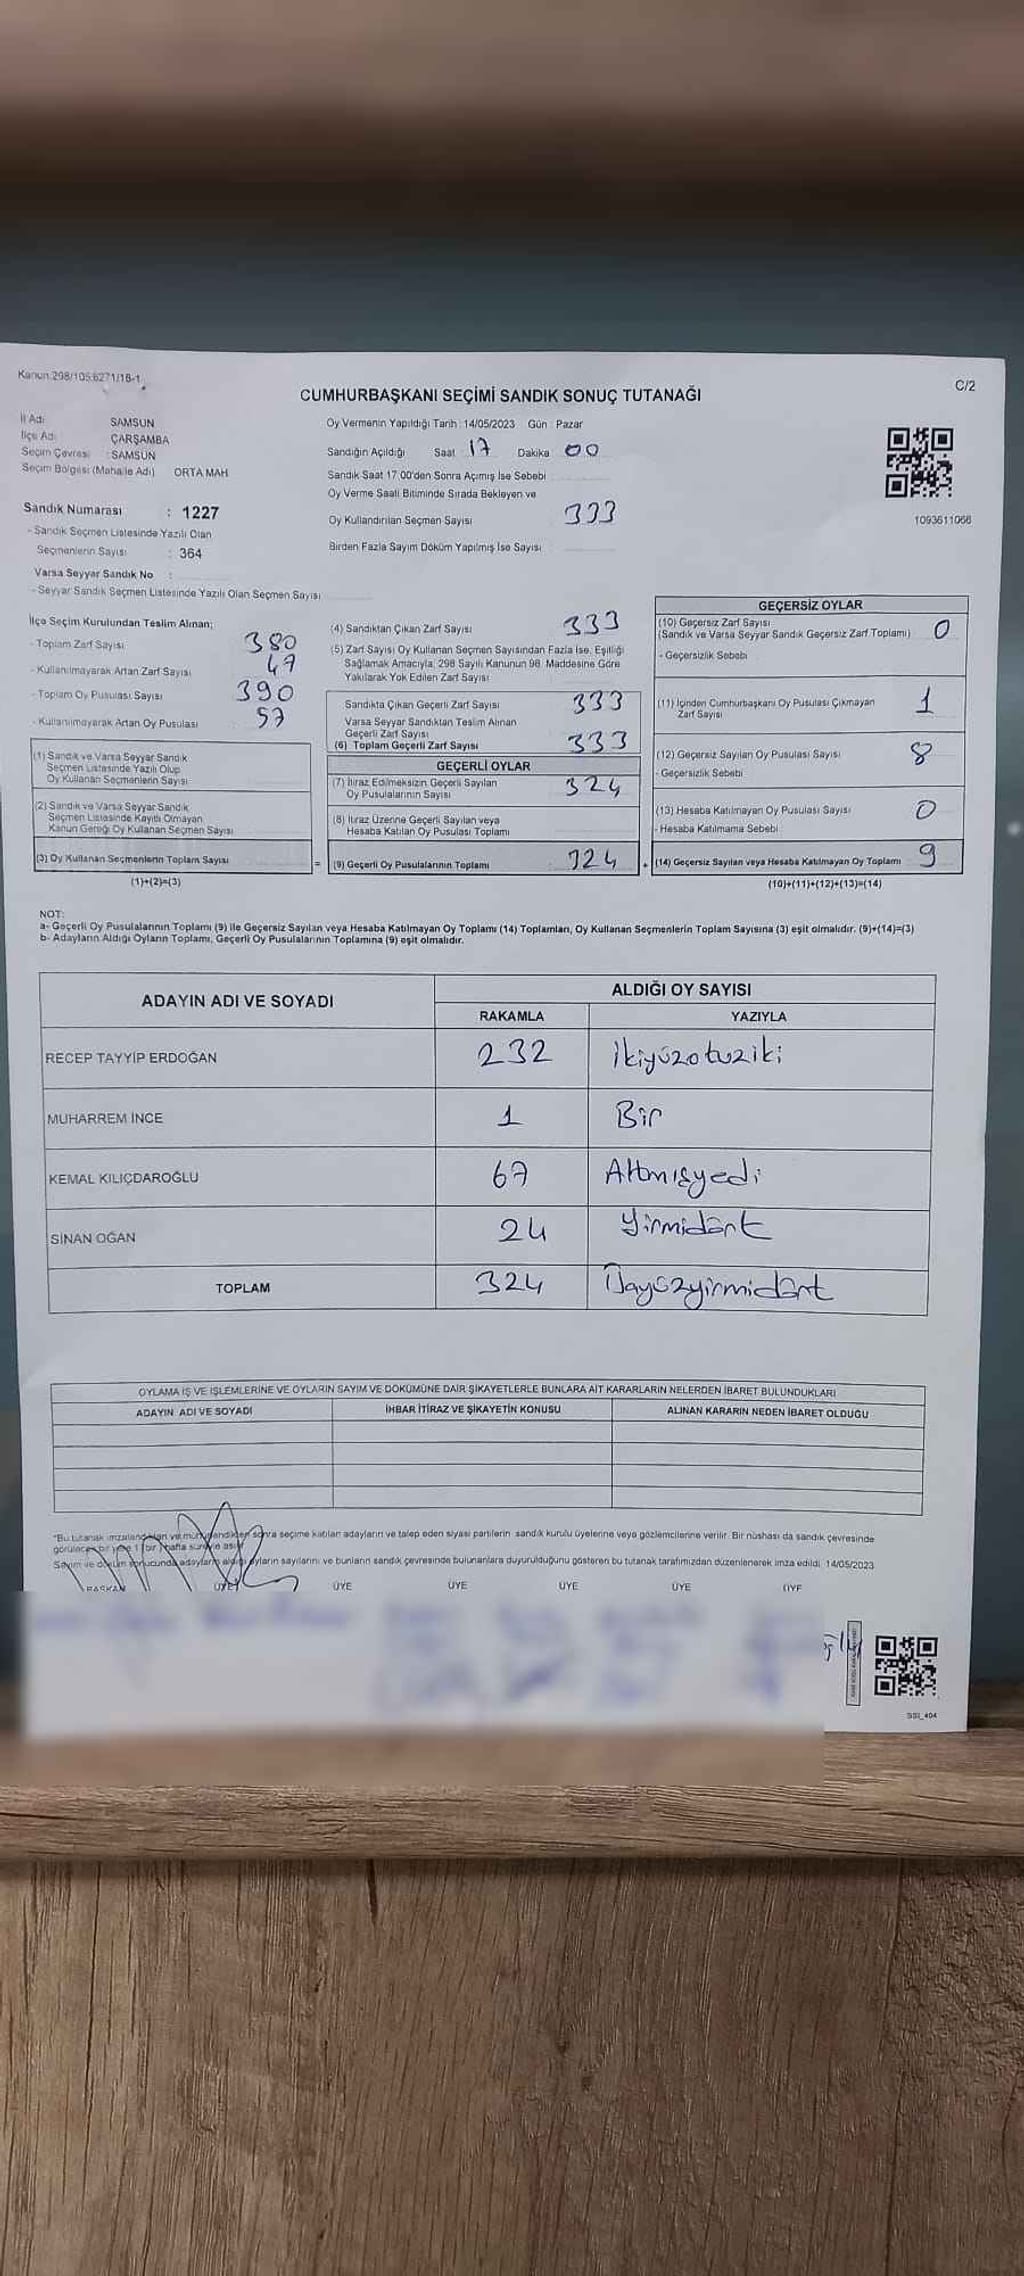 Kanun 298/105.6271/18-1
C/2
CUMHURBAŞKANI SEÇİMİ SANDIK SONUÇ TUTANAĞI
İl Adı SAMSUN
İlçe Adı ÇARŞAMBA
Seçim Çevresi : SAMSUN
Seçim Bölgesi (Mahalle Adı) ORTA MAH
Sandık Numarası : 1227
- Sandık Seçmen Listesinde Yazılı Olan
Seçmenlerin Sayısı : 364
Varsa Seyyar Sandık No :
- Seyyar Sandık Seçmen Listesinde Yazılı Olan Seçmen Sayısı
Oy Vermenin Yapıldığı Tarih : 14/05/2023 Gün : Pazar
Sandığın Açıldığı Saat 17 Dakika 00
Sandık Saat 17:00'den Sonra Açımış İse Sebebi
Oy Verme Saati Bitiminde Sırada Bekleyen ve
Oy Kullandırılan Seçmen Sayısı 333
Birden Fazla Sayım Döküm Yapılmış İse Sayısı
1093611066
İlçe Seçim Kurulundan Teslim Alınan;
- Toplam Zarf Sayısı 380
- Kullanılmayarak Artan Zarf Sayısı 47
- Toplam Oy Pusulası Sayısı 390
- Kullanılmayarak Artan Oy Pusulası 57
(1) Sandık ve Varsa Seyyar Sandık
Seçmen Listesinde Yazılı Olup
Oy Kullanan Seçmenlerin Sayısı
(2) Sandık ve Varsa Seyyar Sandık
Seçmen Listesinde Kayıtlı Olmayan
Kanun Gereği Oy Kullanan Seçmen Sayısı
(3) Oy Kullanan Seçmenlerin Toplam Sayısı
(1)+(2)=(3)
=
(4) Sandıktan Çıkan Zarf Sayısı 333
(5) Zarf Sayısı Oy Kullanan Seçmen Sayısından Fazla İse, Eşitliği
Sağlamak Amacıyla, 298 Sayılı Kanunun 98. Maddesine Göre
Yakılarak Yok Edilen Zarf Sayısı
Sandıkta Çıkan Geçerli Zarf Sayısı 333
Varsa Seyyar Sandıktan Teslim Alınan
Geçerli Zarf Sayısı
(6) Toplam Geçerli Zarf Sayısı 333
GEÇERLİ OYLAR
(7) İtiraz Edilmeksizin Geçerli Sayılan
Oy Pusulalarının Sayısı 324
(8) İtiraz Üzerine Geçerli Sayılan veya
Hesaba Katılan Oy Pusulası Toplamı
(9) Geçerli Oy Pusulalarının Toplamı 324
+
GEÇERSİZ OYLAR
(10) Geçersiz Zarf Sayısı
(Sandık ve Varsa Seyyar Sandık Geçersiz Zarf Toplamı) 0
- Geçersizlik Sebebi
(11) İçinden Cumhurbaşkanı Oy Pusulası Çıkmayan
Zarf Sayısı 1
(12) Geçersiz Sayılan Oy Pusulası Sayısı 8
- Geçersizlik Sebebi
(13) Hesaba Katılmayan Oy Pusulası Sayısı 0
- Hesaba Katılmama Sebebi
(14) Geçersiz Sayılan veya Hesaba Katılmayan Oy Toplamı 9
(10)+(11)+(12)+(13)=(14)
NOT:
a- Geçerli Oy Pusulalarının Toplamı (9) ile Geçersiz Sayılan veya Hesaba Katılmayan Oy Toplamı (14) Toplamları, Oy Kullanan Seçmenlerin Toplam Sayısına (3) eşit olmalıdır. (9)+(14)=(3)
b- Adayların Aldığı Oyların Toplamı, Geçerli Oy Pusulalarının Toplamına (9) eşit olmalıdır.
ADAYIN ADI VE SOYADI
ALDIĞI OY SAYISI
RAKAMLA YAZIYLA
RECEP TAYYİP ERDOĞAN 232 İkiyüzotuziki
MUHARREM İNCE 1 Bir
KEMAL KILIÇDAROĞLU 67 Altmışyedi
SİNAN OĞAN 24 Yirmidört
TOPLAM 324 Üçyüzyirmidört
OYLAMA İŞ VE İŞLEMLERİNE VE OYLARIN SAYIM VE DÖKÜMÜNE DAİR ŞİKAYETLERLE BUNLARA AİT KARARLARIN NELERDEN İBARET BULUNDUKLARI
ADAYIN ADI VE SOYADI İHBAR İTİRAZ VE ŞİKAYETİN KONUSU ALINAN KARARIN NEDEN İBARET OLDUĞU
*Bu tutanak imzalandıktan ve mühürlendikten sonra seçime katılan adayların ve talep eden siyasi partilerin sandık kurulu üyelerine veya gözlemcilerine verilir. Bir nüshası da sandık çevresinde
görülecek bir yere 1 (bir) hafta süreyle asılır
Sayım ve döküm sonucunda adayların aldığı oyların sayılarını ve bunların sandık çevresinde bulunanlara duyurulduğunu gösteren bu tutanak tarafımızdan düzenlenerek imza edildi. 14/05/2023
BAŞKAN ÜYE ÜYE ÜYE ÜYE ÜYE ÜYE
SSI_404